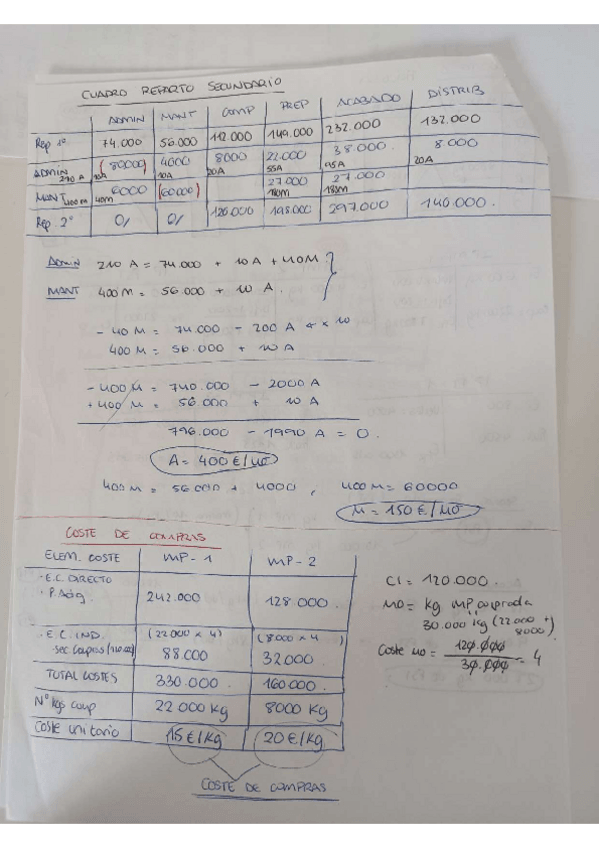 CUADRO REPARTO SECUNDARIO
ADMIN MANT COMP PREP ACABADO DISTRIB
Rep 1º 74.000 56.000 112.000 149.000 232.000 132.000
ADMIN (80000) 4000 8000 22.000 38.000. 8.000
210 A 10A 10A 20A 55A 95A 20A
MANT 6000 (60000) 27.000 27.000
400m 40m 180m 180m
Rep 2º 0/ 0/ 120.000 198.000 297.000 140.000.
ADMIN 210 A = 74.000 + 10 A + 40M.
MANT 400M = 56.000 + 10 A.
- 40 M = 74.000 - 200 A x 10
400 M = 56.000 + 10 A
- 400 M = 740.000 - 2000 A
+ 400 M = 56.000 + 10 A
796.000 - 1990 A = 0.
A = 400 €/UO
400 M = 56.000 + 4000 , 400 M = 60000
M = 150 €/UO
COSTE DE COMPRAS
ELEM. COSTE MP - 1 MP - 2
· E.C. DIRECTO
· P. Adq. 242.000 128.000.
· E.C. IND. (22000 x 4) (8000 x 4)
88.000 32000.
TOTAL COSTES 330.000. 160.000.
Nº kgs comp 22 000 Kg 8000 Kg
Coste unitario 15 €/Kg 20 €/Kg.
COSTE DE COMPRAS
CI = 120.000.
UO = Kg MP comprada
30.000 Kg (22000 + 8000)
Coste uo = 120.000 / 30.000 = 4